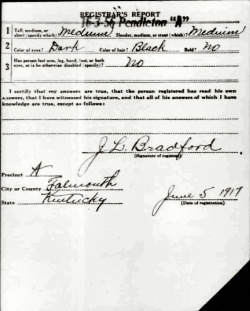 REGISTRAR'S REPORT
16-3-56 Pendleton "A"
1 Tall, medium, or short (specify which)? Medium Slender, medium, or stout (which)? Medium
2 Color of eyes? Dark Color of hair? Black Bald? No
3 Has person lost arm, leg, hand, foot, or both eyes, or is he otherwise disabled (specify)? No
I certify that my answers are true, that the person registered has read his own answers, that I have witnessed his signature, and that all of his answers of which I have knowledge are true, except as follows:
J. L. Bradford
(Signature of registrar)
Precinct A
City or County Falmouth
State Kentucky
June 5 1917
(Date of registration)